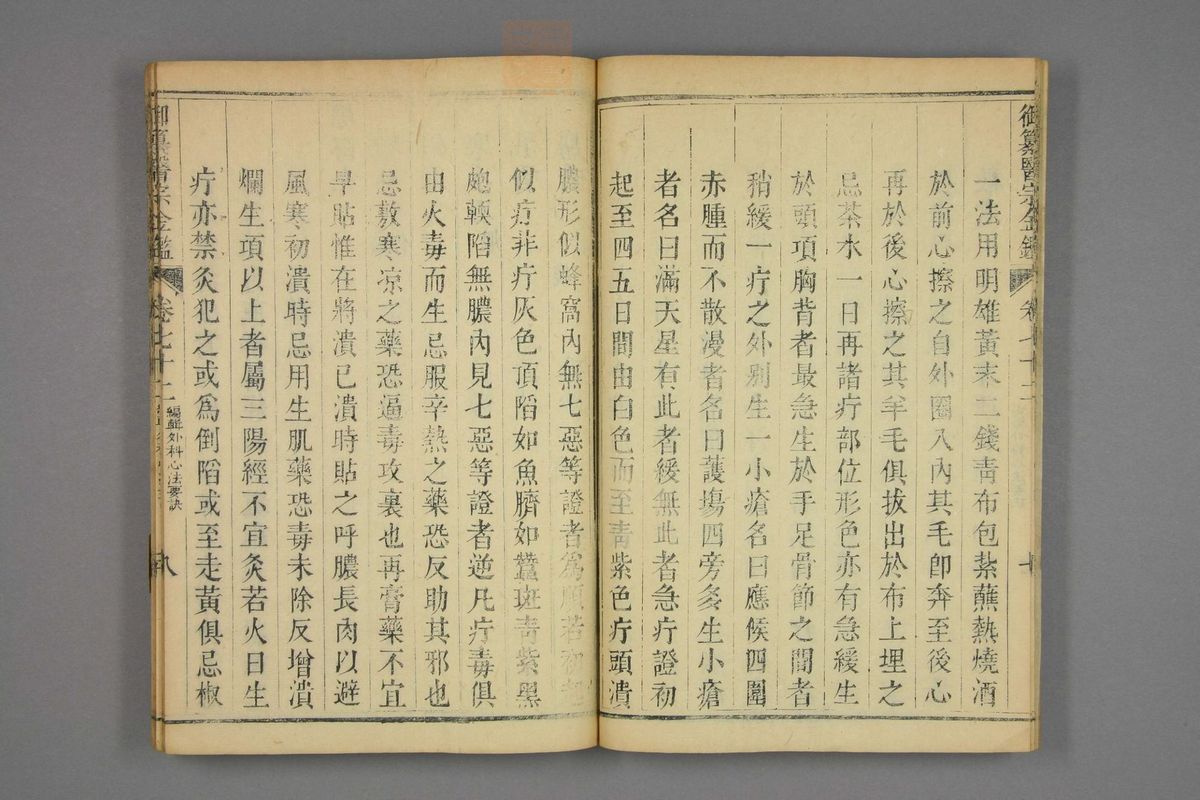 御纂醫宗金鑑
一法用明雄黃末二錢靑布包紮蘸熱燒酒
於前心擦之自外圈入內其毛卽奔至後心
再於後心擦之其羊毛俱拔出於布上埋之
忌茶水一日再諸疔部位形色亦有急緩生
於頭項胸背者最急生於手足骨節之間者
稍緩一疔之外別生一小瘡名曰應候四圍
赤腫而不散漫者名曰護場四旁多生小瘡
者名曰滿天星有此者緩無此者急疔證初
起至四五日間由白色而至靑紫色疔頭潰
膿形似蜂窩內無七惡等證者爲順若初起
似疔非疔灰色頂陷如魚臍如蠶斑靑紫黑
皰輭陷無膿內見七惡等證者逆凡疔毒俱
由火毒而生忌服辛熱之藥恐反助其邪也
忌敷寒凉之藥恐逼毒攻裏也再膏藥不宜
早貼惟在將潰已潰時貼之呼膿長肉以避
風寒初潰時忌用生肌藥恐毒未除反增潰
爛生項以上者屬三陽經不宜灸若火日生
疔亦禁灸犯之或爲倒陷或至走黃俱忌椒
御纂醫宗金鑑
卷七十二
編輯外科心法要訣
八